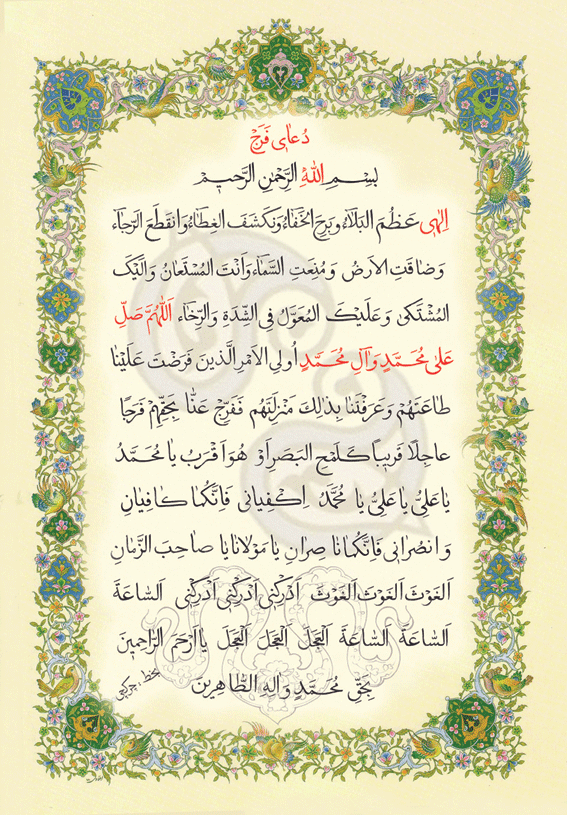 دُعای فَرَج
بِسْمِ اللهِ الرَّحْمٰنِ الرَّحیمِ
اِلٰهی عَظُمَ البَلاٰءُ وَبَرِحَ الخَفٰاءُ وَنکَشَفَ الغِطٰاءُ وَانْقَطَعَ الرَّجٰاء
وَضٰاقَتِ الاَرضُ وَ مُنِعَتِ السَّمٰاء وَاَنْتَ المُسْتَعٰانُ وَ اِلَیْکَ
المُشْتَکیٰ وَ عَلَیْکَ المُعَوَّلُ فِی الشِّدَةِ وَ الرِّخٰاء اَللّٰهُمَّ صَلِّ
عَلیٰ مُحَمَّدٍ وَ آلِ مُحَمَّدٍ اُولِی الاَمْرِ الَّذینَ فَرَضْتَ عَلَیْنٰا
طٰاعَتَهُمْ وَ عَرَفْتَنٰا بِذٰلِکَ مَنْزِلَتَهُم فَفَرِّجْ عَنّٰا بِحَقِّهِمْ فَرَجًا
عاجِلًا قَریبًا کَلَمْحِ البَصَرِ اَوْ هُوَ اَقْرَبُ یٰا مُحَمَّدُ
یٰا عَلیُّ یٰا عَلِیُّ یٰا مُحَمَّدُ اِکْفِیٰانی فَاِنَّکُمٰا کٰافِیٰانِ
وَ انْصُرٰانی فَاِنَّکُمٰا نٰاصِرانِ یٰا مَوْلانٰا یٰا صٰاحِبَ الزَّمٰانِ
اَلغَوْثَ اَلغَوْثَ اَلغَوْثَ اَدْرِکْنِی اَدْرِکْنِی اَدْرِکْنِی اَلسّٰاعَةَ
اَلسّٰاعَةَ اَلسّٰاعَةَ اَلْعَجَلَ اَلْعَجَلَ اَلْعَجَلَ یٰا اَرْحَمَ الرّٰاحِمینَ
بِحَقِّ مُحَمَّدٍ وَ الِهِ الطّٰاهِرینَ